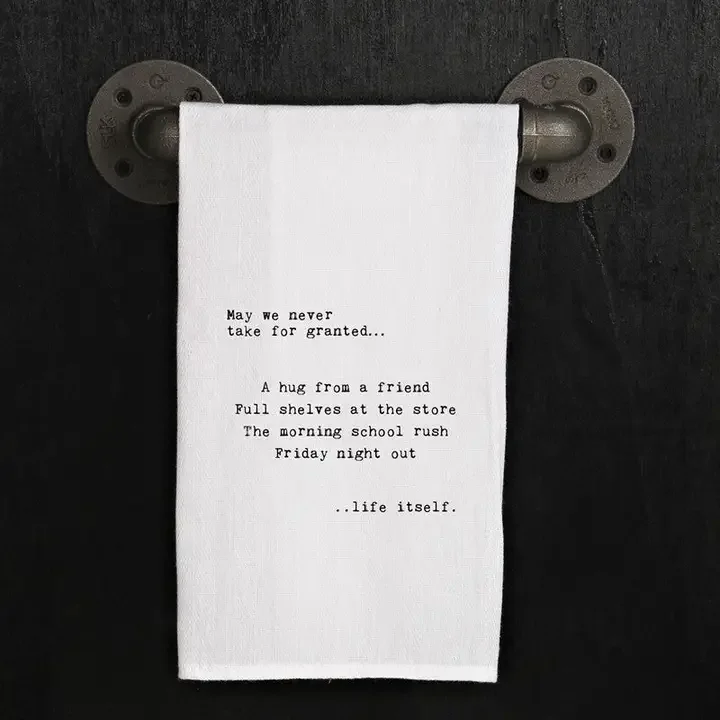 May we never
take for granted...
A hug from a friend
Full shelves at the store
The morning school rush
Friday night out
..life itself.